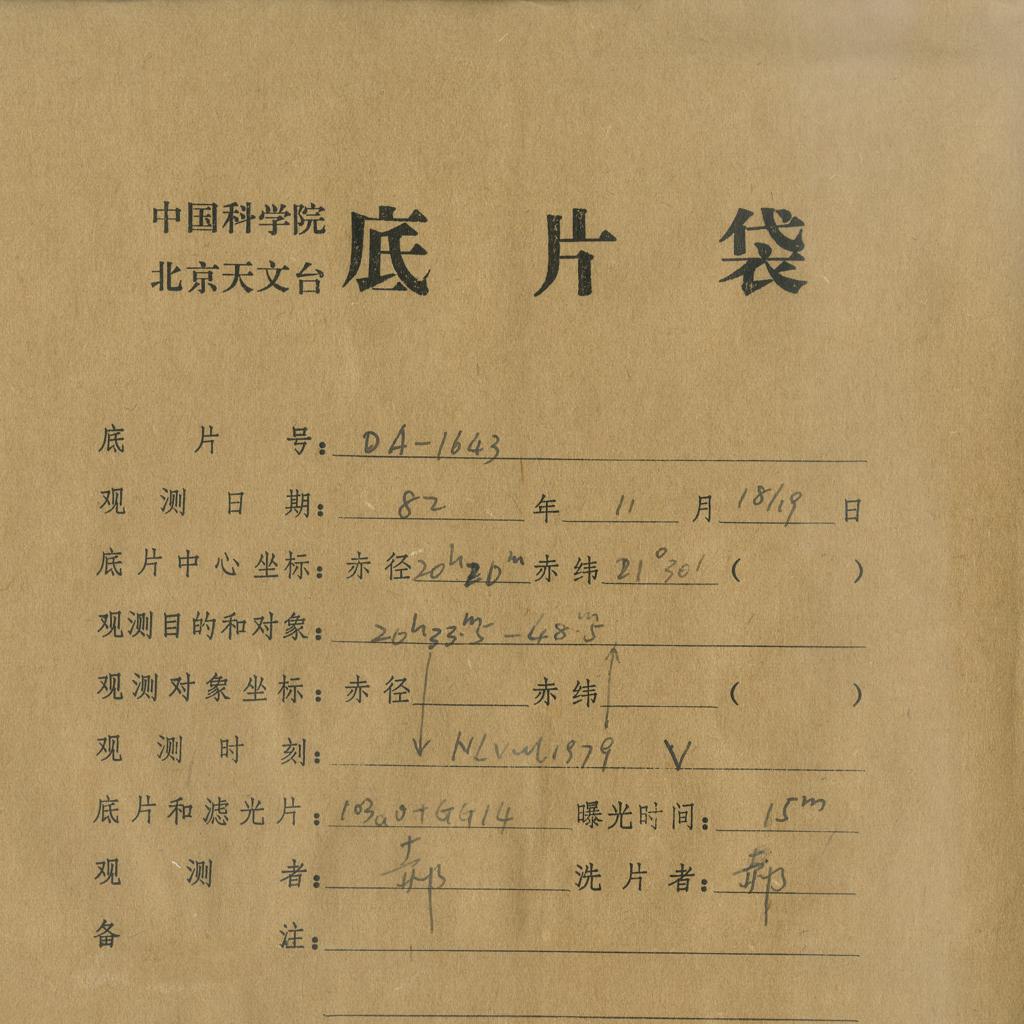 中国科学院
北京天文台
底片袋
底片号：DA-1643
观测日期：82年11月18/19日
底片中心坐标：赤径20h20m赤纬21°30′（ ）
观测目的和对象：20h33.m5-48.m5
观测对象坐标：赤径 赤纬 （ ）
观测时刻：NLVul1979 V
底片和滤光片：103aO+GG14 曝光时间：15m
观测者：郝 洗片者：郝
备注：